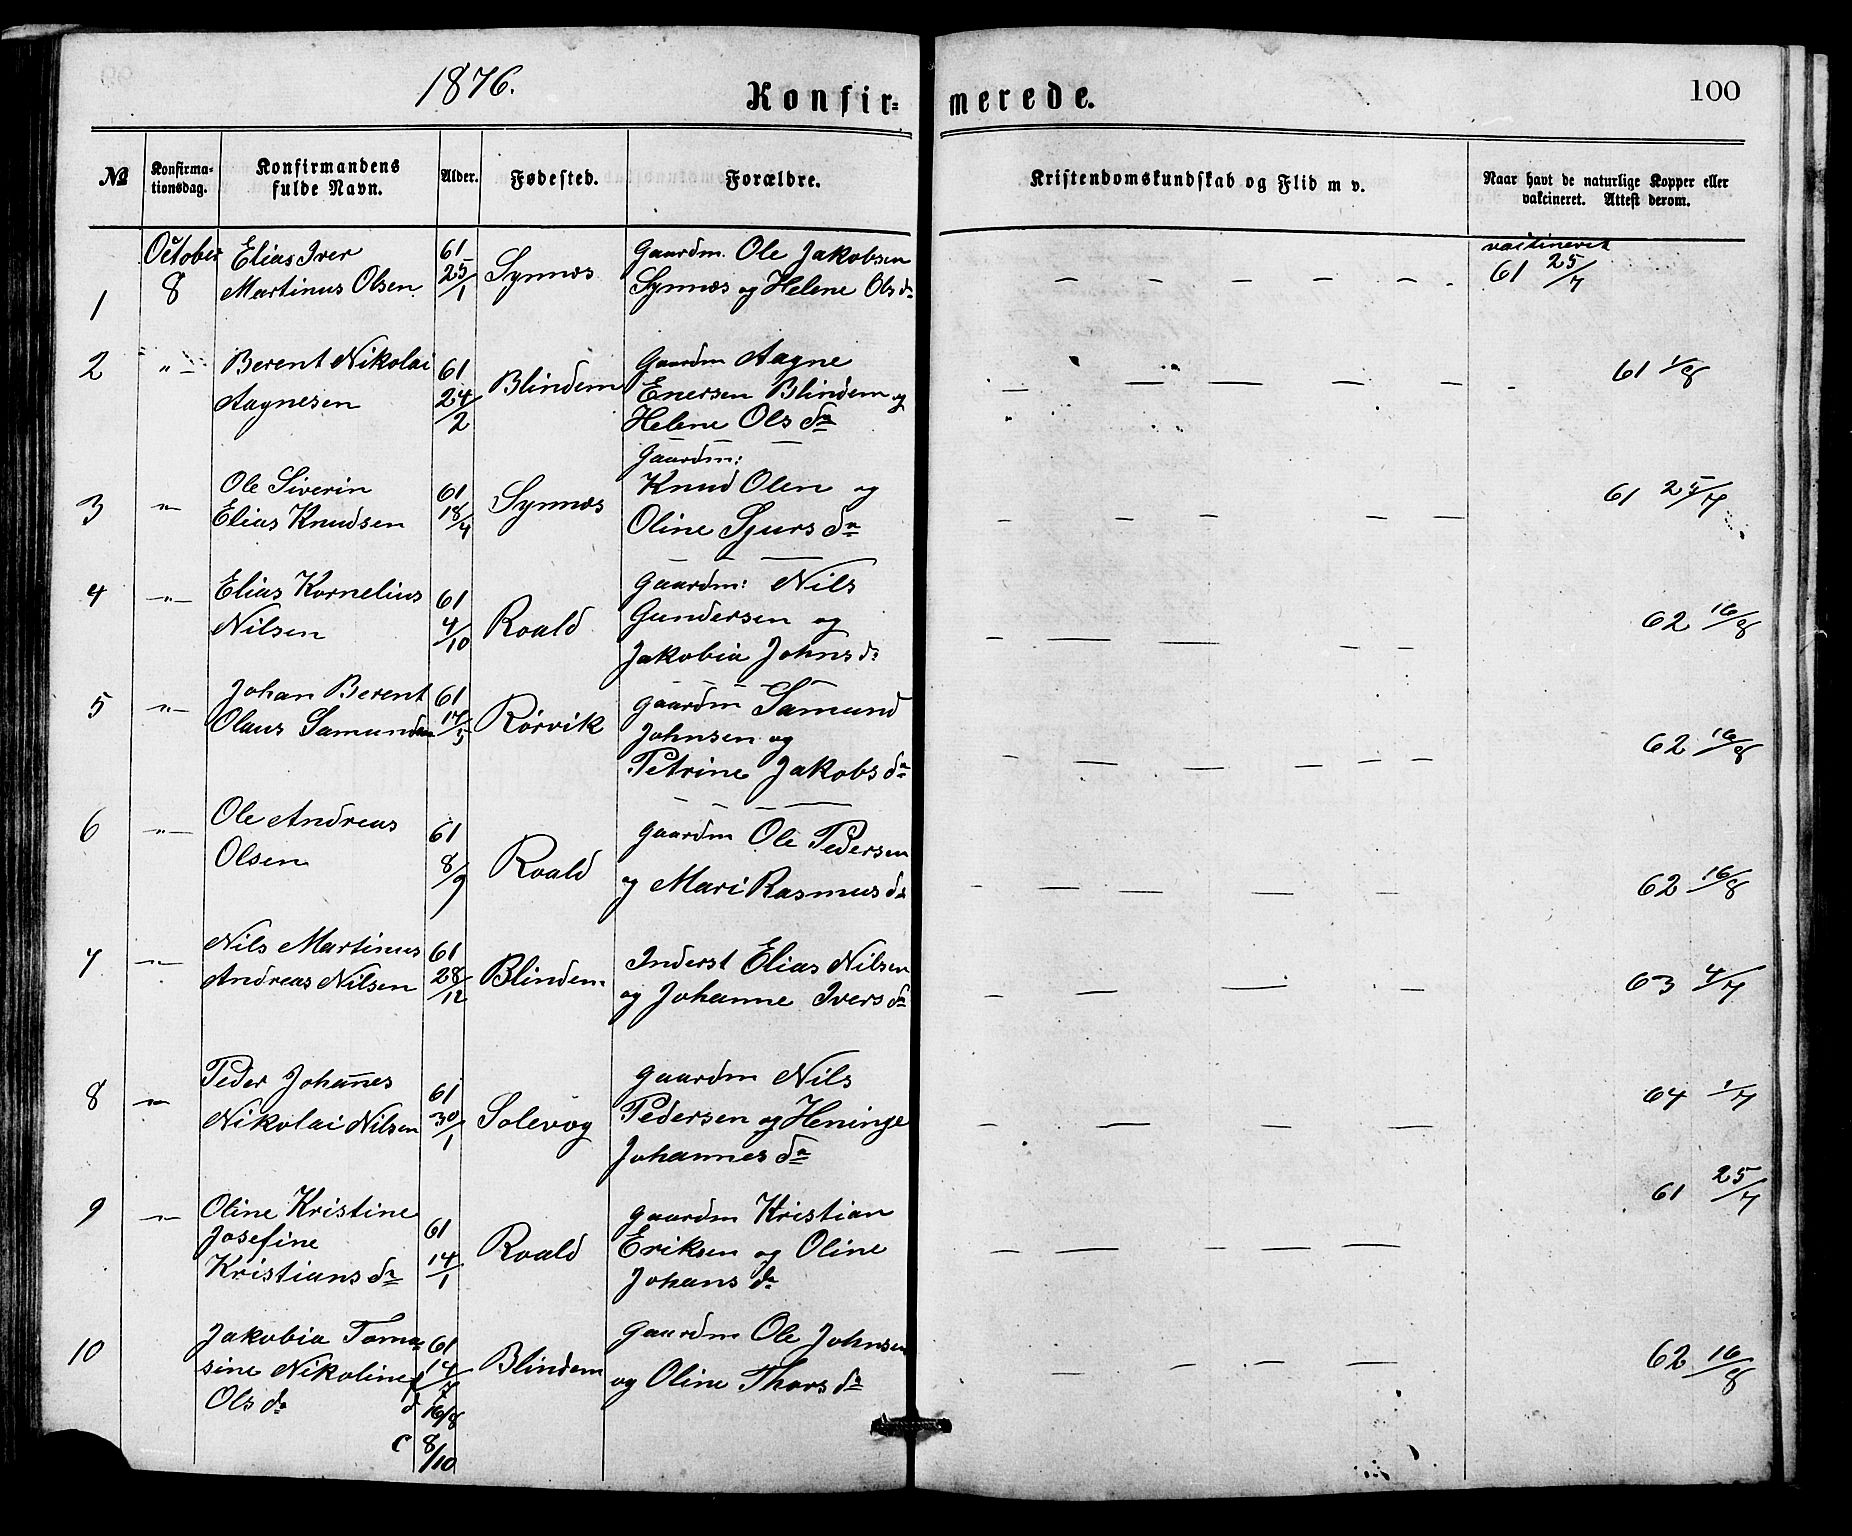 1876.
Konfir=
merede.
100
№
Konfirma-
tionsdag.
Konfirmandens
fulde Navn.
Alder.
Fødested.
Forældre.
Kristendomskundskab og Flid m v.
Naar havt de naturlige Kopper eller
vakcineret. Attest derom.
1
October
8
Elias Iver
Martinus Olsen
61
25/1
Synnæs
Gaardm. Ole Jakobsen
Synnæs og Helene Ols dr
— — — — — -
vaccineret
61 25/7
2
-"-
Berent Nikolai
Aagnesen
61
24/2
Blindem
Gaardm Aagne
Enersen Blindem og
Helene Ols dr
— — — — — -
61 1/8
3
-"-
Ole Siverin
Elias Knudsen
61
18/4
Synnæs
Gaardm:
Knud Olen og
Oline Sjurs dr
— — — — —
61 25/7
4
-"-
Elias Kornelius
Nilsen
61
4/10
Roald
Gaardm: Nils
Gundersen og
Jakobia Johns dr
— — — — —
62 16/8
5
-"-
Johan Berent
Olaus Samundsen
61
17/5
Rørvik
gaardm Samund
Johnsen og
Petrine Jakobs dr
— — — — — — —
62 16/8
6
-"-
Ole Andreas
Olsen
61
8/9
Roald
gaardm Ole Pedersen
og Mari Rasmus dr
— — — — — —
62 16/8
7
-"-
Nils Martinus
Andreas Nilsen
61
28/12
Blindem
Inderst Elias Nilsen
og Johanne Ivers dr
— — — —
63 4/7
8
-"-
Peder Johannes
Nikolai Nilsen
61
30/1
Solevog
gaardm Nils
Pedersen og Heninge
Johannes dr
— — — — —
64 1/7
9
-"-
Oline Kristine
Josefine
Kristians dr
61
14/1
Roald
gaardm Kristian
Eriksen og Oline
Johans dr
— — — — —
61 25/7
10
Jakobia Toma-
sine Nikoline
Ols dr
61
14/7
d 16/8
c 8/10
Blindem
gaardm Ole Johnsen
og Oline Thors dr
— — — —
62 16/8